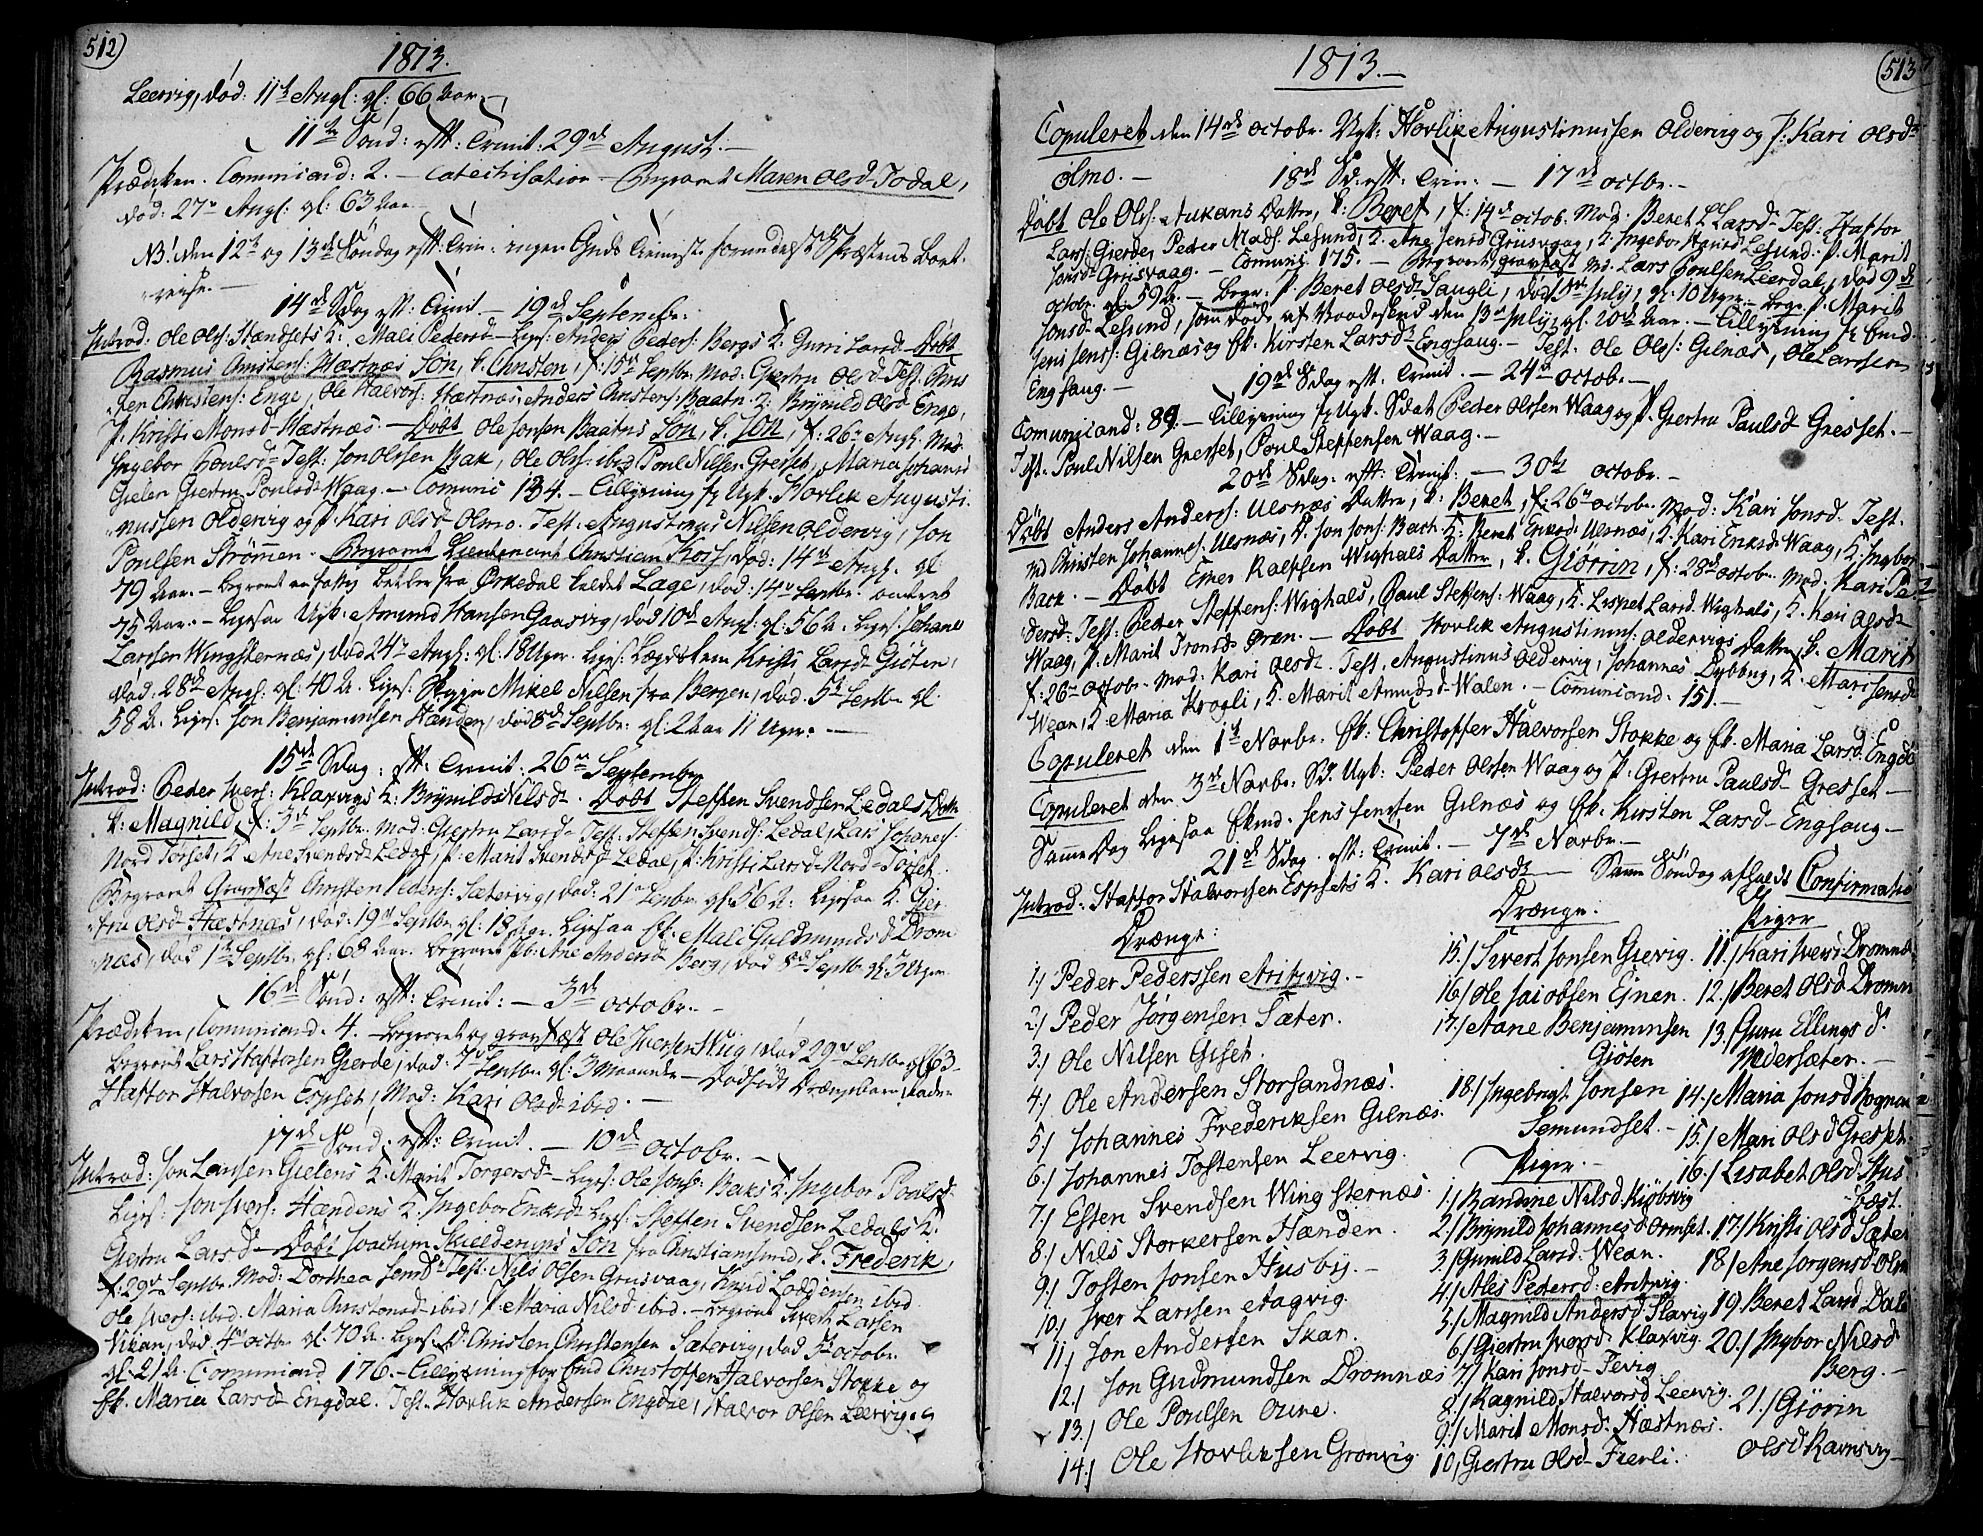 512)
1813.
Leervig, død: 11te Aug: gl: 66 Aar. –
11te Sønd: eft: Trinit: 29de August. –
Prædiken. Communicand: 2. – Catechisation – Begravet Maren Olsd Todal,
død: 27de Aug: gl: 63 Aar. –
NB. den 12te og 13de Søndag eft: Trin: ingen Guds Tieniste formedelst Præstens Bort-
reise. –
14de Sdag eft: Trinit – 19de Septembr.
Introd: Ole Ols: Stændsets K: Mali Pedersd – Liges: Anders Peders: Bergs K: Guri Larsd – Døbt
Rasmus Christens: Hæstnæs Søn, k. Christen, f: 15de Septbr. Mod: Giertru Olsd. Test: Chris
ten Christens: Enge, Ole Halvors: Hæstnæs, Anders Christens: Baatn. K: Brynild Olsd Enge,
P. Kristi Monsd. Hæstnæs. – Døbt Ole Jonsen Baatnes Søn, k. Jon, f: 26de Aug: Mod:
Ingebor Poulsd. Test: Jon Olsen Bak, Ole Ols: ibid, Poul Nilsen Gresset, Maria Johansd
Gielen Giertru Poulsd. Waag. – Communic 134. – Tillysning f: Ugk. Hovlik Augusti
nussen Oldervig og P. Kari Olsd Olmo. Test: Augustinus Nilsen Oldervig, Jon
Poulsen Strømmen. Begravet Lieutenant Christian Kors, død: 14de Aug. gl:
79 Aar. – begravet en fattig Betler fra Ørkedal kaldet Lage, død: 14de Septbr. omtrent
75 Aar. – Ligesaa Ugk: Amund Hansen Gaasvig, død 10de Aug: gl: 56 A. Liges: Johane
Larsen Wingsternæs, død 24de Aug: gl: 18 Uger. Liges: Lægdslem Kristi Larsd Giøten,
død: 28de Aug: gl: 40 A. Liges: Mikel Nilsen fra Bergen, død: 5te Septbr gl:
58 A. Liges: Jon Benjaminsen Hænden, død 8de Septbr. gl: 2 Aar 11 Uger. –
15de Sdag: eft: Trinit. 26de Septembr
Introd: Peder Ivers: Klaxvigs K: Brynild Nilsd. Døbt Steffen Svendsen Ledals Datt:
k: Magnild, f: 3de Septbr. Mod: Giertru Larsd – Test: Steffen Svends: Ledal, Lars Johanes:
Nord Torset, K: Ane Svendsd. Ledal, P: Marit Svendsd. Ledal, P: Kristi Larsd. Nord-Torset.
Begravet Gravfæst Christen Peders: Sætervig, død: 21de Septbr. gl: 56 A: Ligesaa K: Gier-
tru Olsd Hæstnæs, død: 19de Septbr. gl: 18 Uger. Ligesaa Ek: Mali Guldmundsd Drom
næs, død 1te Septbr. gl: 68 Aar. begravet Pb: Ane Andersd Berg, død 8de Septbr gl: 3 Uger.
16de Sønd: eft: Trinit: – 3de Octobr. –
Prædiken, Communicand. 4. – begravet og gravfæst Ole Iversen Hug, død 29de Septbr. gl: 63 –
begravet Lars Haftorsen Gierde, død: 7de Septbr. gl: 3 Maaneder – Dødfødt Drængebarn, Fader
Haftor Halvorsen Espset, Mod: Kari Olsd ibid. –
17de Sønd: eft: Trinit. – 10de Octobr. –
Introd: Jon Larsen Gielens K: Marit Torgersd – Liges: Ole Jons: Baks K: Ingebor Poulsd.
Liges: Jon Ivers: Hændens K: Ingebor Eriksd. Liges: Steffen Svendsen Ledals K:
Giertru Larsd – Døbt Joachim Skielderups Søn fra Christiansund, k. Frederik,
f: 29de Septbr. Mod: Dorthea Jensd – Test: Nils Olsen Grusvaag, Knud Loddensen ibid.
Ole Ivers: ibid. Maria Christensd ibid, P: Maria Nilsd ibid. – begravet Sivert Larsen
Vikan, død 4de Octbr gl: 70 A. Liges: D: Christen Christensen Sætervig, død 7de Octobr.
gl: 21 A. Communicand 176. – Tillysning for Emd Christoffer Halvorsen Stokke og
Ek. Maria Larsd Engdal. Test. Hovlik Andersen Engdal, Halvor Olsen Leervig.
1813. –
513
Copuleret den 14de Octobr. Ugk: Hovlik Augustinussen Oldervig og P: Kari Olsd.
Olmo. –
18de Sd: eft: Trin: – 17de Octbr. –
Døbt Ole Ols: Aukans Datter, k: Beret, f: 14de Octob. Mod. Beret Larsd. Test. Haftor
Lars: Gierde, Peder Mads: Lesund, K. Ane Jensd Grusvaag, K. Ingebor Lesund: P. Marit
Jonsd. Grisvaag. – Comuni: 175. – Begravet gravfæst Md. Lars Poulsen Leerdal, død 9de
Octobr: gl: 59 A. – begr: P. Beret Olsd Saugli, død 5te July, gl: 10 Uger. – begr. P: Marit
Jonsd. Lesund, som døde af Vaadeskud den 13de July, gl. 20de Aar. – Tillysning f: Emd.
Jens Jens: Gilnæs og Ek. Kirsten Larsd. Engsaug. – Test. Ole Ols: Gilnæs, Ole Larssen
Engsaug. –
19de Sdag eft. Trinit. – 24de Octob. –
Comunicand: 89. – Tillysning f: Ugk. Sdat Peder Olssen Waag og P. Giertru Paulsd. Gresset. –
Test. Poul Nilsen Gresset, Poul Steffensen Waag. –
20de Sdag. eft: Trinit. – 30te Octobr. –
Døbt Anders Anders: Ulsnæs Datter, k: Beret, f: 26de Octobr. Mod: Kari Jonsd. Test.
Md Christen Johannes: Ulsnæs, D. Jon Jons: Bach. K: Beret Eriksd. Ulsnæs, K. Kari Eriksd. Waag, K: Ingebor
Back. – Døbt Einer Ralfsen Wighals Datter, k. Giørrin, f: 28de Octob. Mod: Kari Pe-
dersd: Test: Peder Steffens: Wighals, Paul Steffens: Waag, K: Lispet Larsd. Wighals, K. Kari Olsd.
Waag, P. Marit Tronsd. Øren. – Døbt Hovlik Augustinus: Oldervigs Datter, k. Marit
f: 26de Octobr. Mod: Kari Olsd. Test. Augustinus Oldervig, Johannes Dybbug, K. Mari Jensd.
Wean, K: Maria Krogli, K. Marit Amudsd. Walen. – Comunicand: 151. –
Copuleret den 1te Novbr. Ek: Christoffer Halvorsen Stokke og Ek. Maria Larsd. Engdal
Copuleret den 3de Novbr. Sd. Ugk: Peder Olssen Waag og P: Giertru Paulsd – Gresset –
Copuleret samme Dag Ligesaa Ekmd. Jens Jenssen Gilnæs og Ek. Kirsten Larsd – Engsaug –
21de Sdag. eft: Trinit. – 7de Novbr. –
Introd: Haftor Halvorssen Espsets K. Kari Olsd. – Samme Søndag afholdt Confirmatio
Drænge:
1./ Peder Pederssen Aritsvig. –
2./ Peder Jørgensen Sæter.
3./ Ole Nilsen Giset.
4./ Ole Andersen Storsandnæs.
5./ Johannes Frederiksen Gilnæs.
6./ Johannes Tostensen Leervig.
7./ Esten Svendsen Wingsternæs.
8./ Nils Storkersen Hænden.
9./ Tosten Jonsen Husby. –
10./ Iver Larssen Aagvig.
11./ Jon Andersen Skar.
12./ Jon Gudmundsen Dromnæs
13./ Ole Poulsen Oune.
14./ Ole Hovliksen Grønvig
Drænge:
15./ Sivert Jonsen Giervig.
16./ Ole Jacobsen Ejnen.
17./ Aane Benjaminsen
Gjøten
18./ Ingebrigt Jonsen
Semundset. –
Piger. –
1./ Randine Nilsd. Kiøbsvig
2./ Brynild Johannesd. Ormset.
3./ Gunild Larsd. Wean.
4./ Ales Pedersd. Aritsvig.
5./ Magnild Andersd. Slavig
6./ Giertru Iversd. Klaxvig.
7./ Kari Jonsd – Tevig
8./ Ragnild Halvorsd. Leervig.
9./ Marit Monsd. Hæstnæs.
10./ Giertru Olsd. Fierli.
Piger
11./ Kari Ivers: Dromnæ
12./ Beret Olsd Dromn
13. Guru Ellings d.
Medersæter. –
14./ Maria Jonsd Rognas
15./ Mari Olsd Gresset
16./ Lisabet Olsd. Hus-
17./ Kristi Olsd Sæter
18./ Ane Jørgensd. Olm
19. Beret Larsd. Dale
20./ Ingbor Nilsd
Berg. –
21./ Giørin
Olsd Ravnsvig –